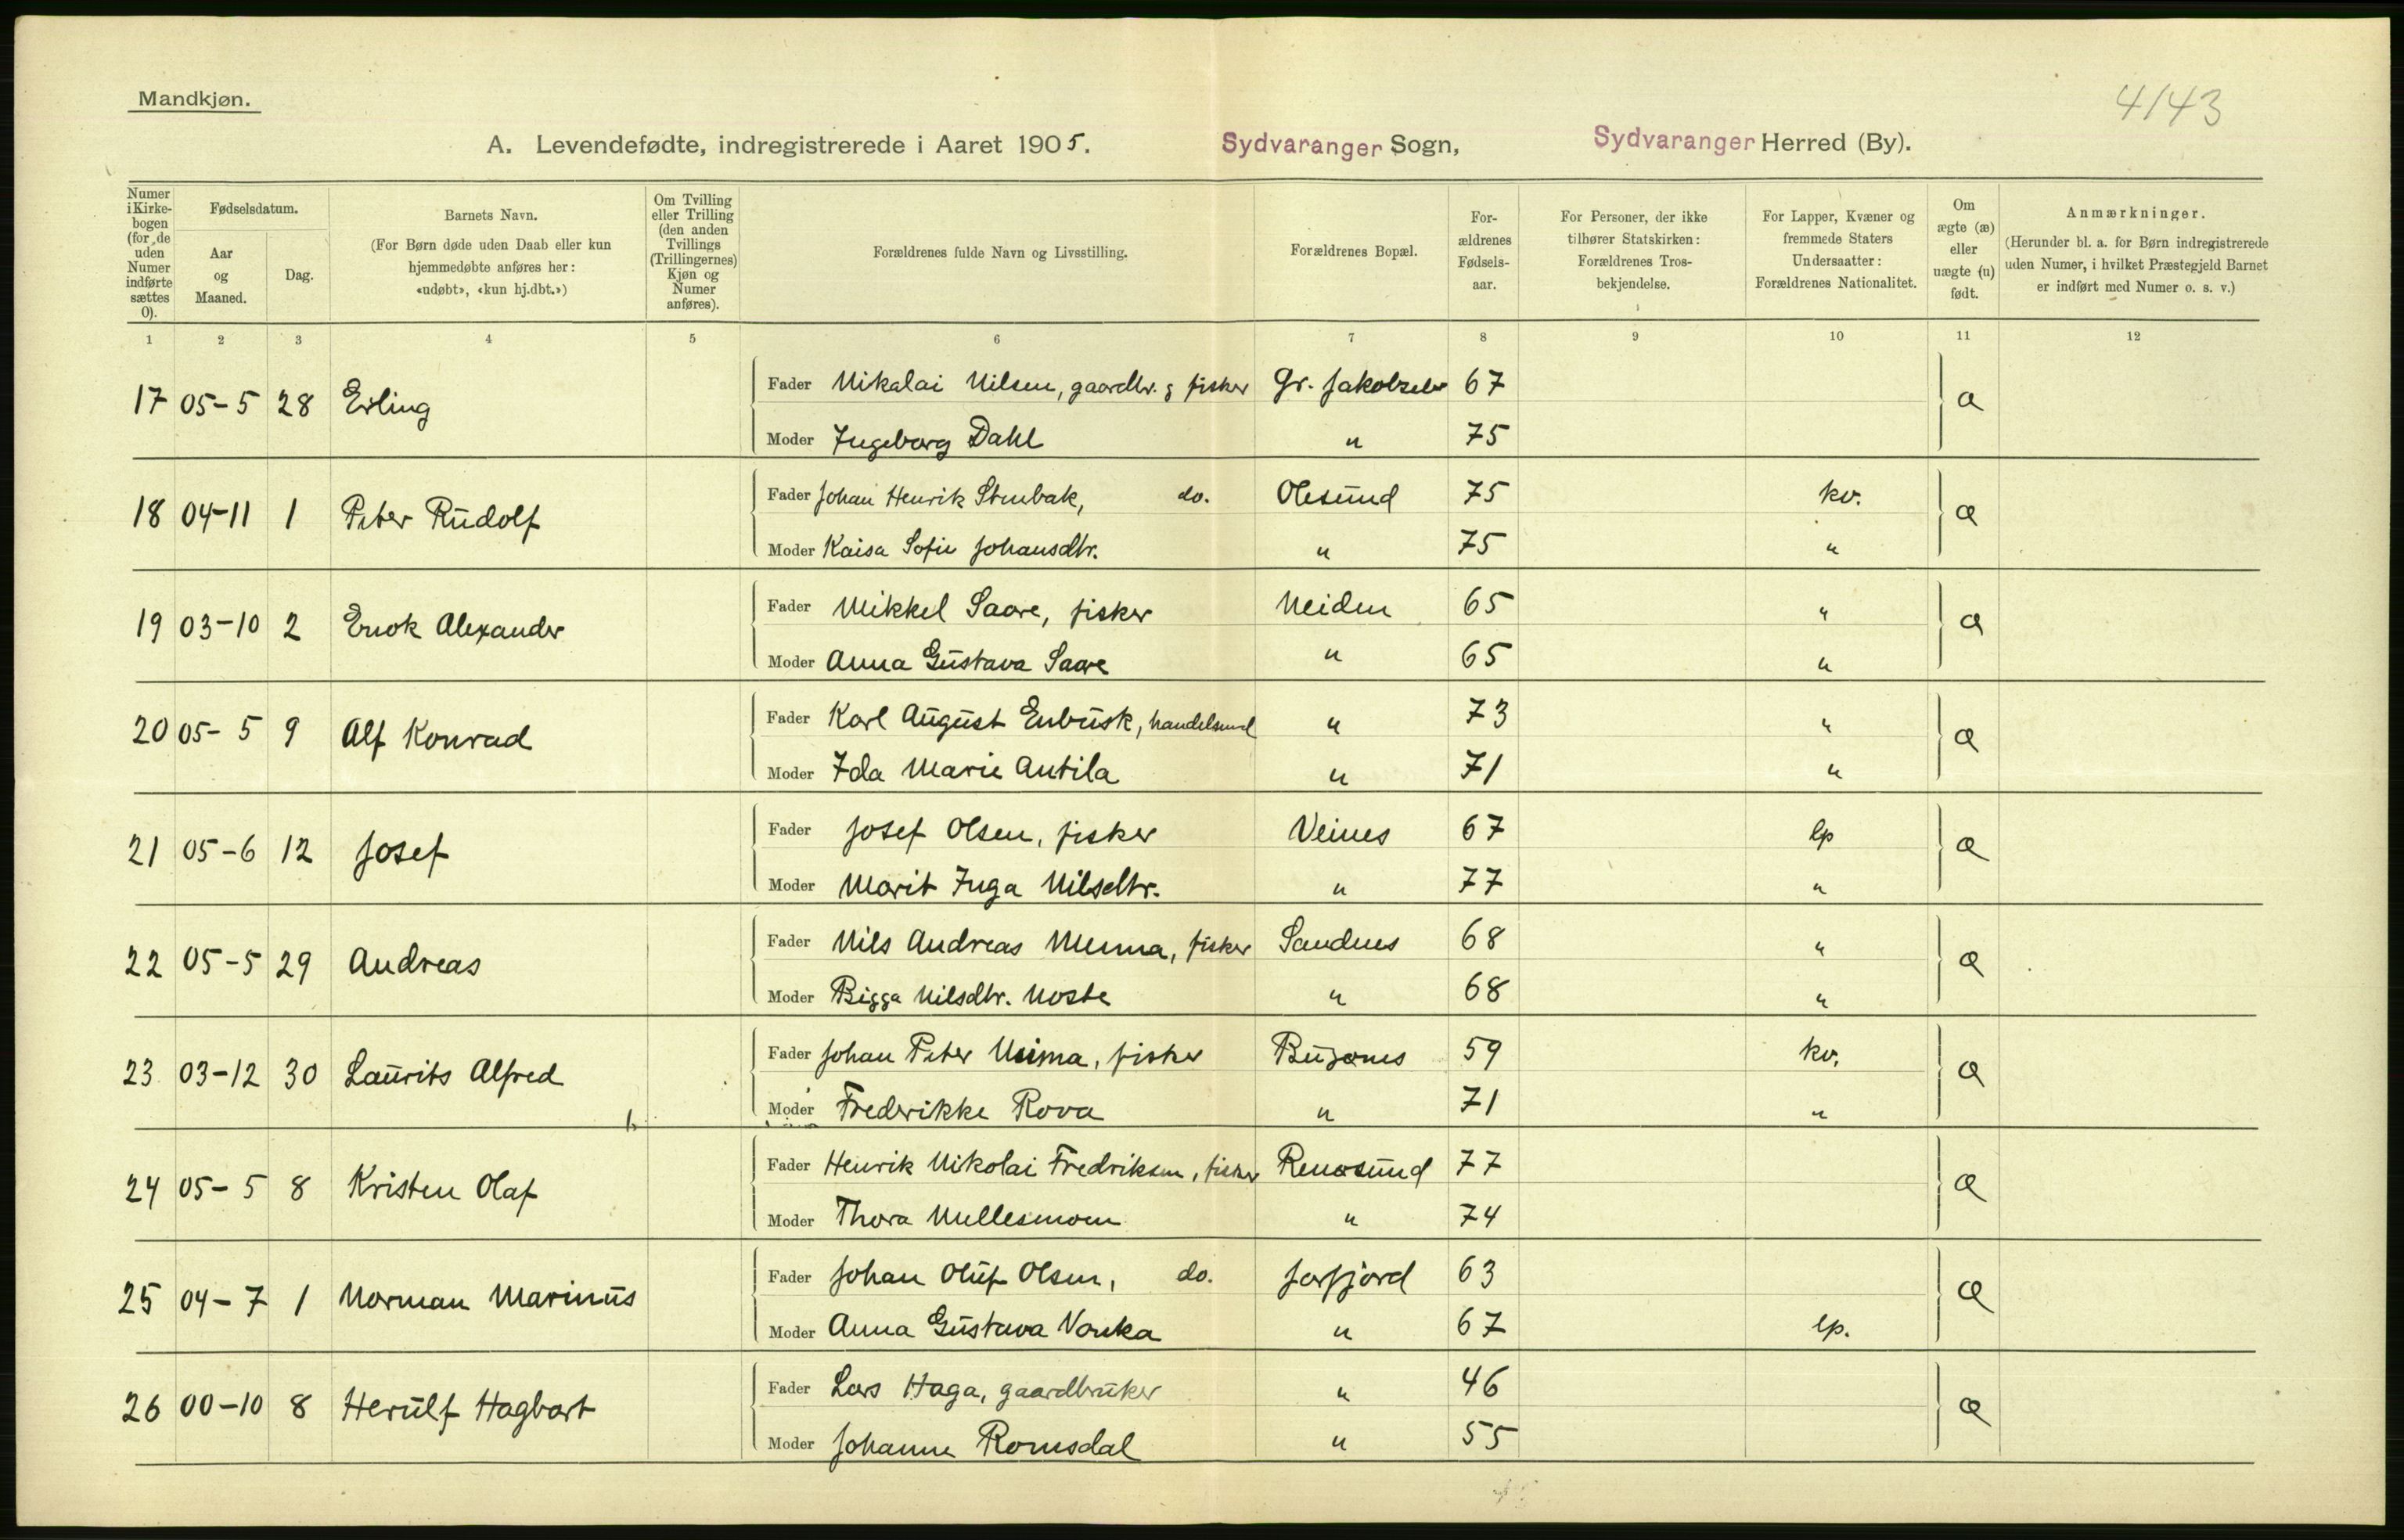 Mandkjøn.
4143
A. Levendefødte, indregistrerede i Aaret 1905. Sydvaranger Sogn, Sydvaranger Herred (By).
Numer i Kirkebogen (for de uden Numer indførte sættes 0).
Fødselsdatum.
Aar og Maaned.
Dag.
Barnets Navn.
(For Børn døde uden Daab eller kun hjemmedøbte anføres her: «udøbt», «kun hj.dbt.»)
Om Tvilling eller Trilling (den anden Tvillings (Trillingernes) Kjøn og Numer anføres).
Forældrenes fulde Navn og Livsstilling.
Forældrenes Bopæl.
Forældrenes Fødselsaar.
For Personer, der ikke tilhører Statskirken: Forældrenes Trosbekjendelse.
For Lapper, Kvæner og fremmede Staters Undersaatter: Forældrenes Nationalitet.
Om ægte (æ) eller uægte (u) født.
Anmærkninger.
(Herunder bl. a. for Børn indregistrerede uden Numer, i hvilket Præstegjeld Barnet er indført med Numer o. s. v.)
1 2 3 4 5 6 7 8 9 10 11 12
17 05-5 28 Erling Fader Nikalai Nilsen, gaardbr. & fisker Gr. Jakobselv 67 æ
Moder Ingeborg Dahl " 75
18 04-11 1 Peter Rudolf Fader Johan Henrik Stenbak, do. Olesund 75 kv. æ
Moder Kaisa Sofie Johansdtr. " 75 "
19 03-10 2 Enok Alexander Fader Mikkel Saare, fisker Neiden 65 " æ
Moder Anna Gustava Saare " 65 "
20 05-5 9 Alf Konrad Fader Karl August Enbusk, handelsmd " 73 " æ
Moder Ida Marie Antila " 71 "
21 05-6 12 Josef Fader Josef Olsen, fisker Veines 67 lp æ
Moder Marit Inga Nilsdtr. " 77 "
22 05-5 29 Andreas Fader Nils Andreas Menna, fisker Sandnes 68 " æ
Moder Bigga Nilsdtr. Noste " 68 "
23 03-12 30 Laurits Alfred Fader Johan Peter Niima, fisker Bugønes 59 kv. æ
Moder Frederikke Rova " 71 "
24 05-5 8 Kristen Olaf Fader Henrik Nikolai Fredriksen, fisker Renøsund 77 æ
Moder Thora Mullesmoen " 74
25 04-7 1 Norman Marinus Fader Johan Oluf Olsen, do. Jarfjord 63 æ
Moder Anna Gustava Vonka " 67 lp.
26 00-10 8 Herulf Hagbart Fader Lars Haga, gaardbruker " 46 æ
Moder Johanne Romsdal " 55